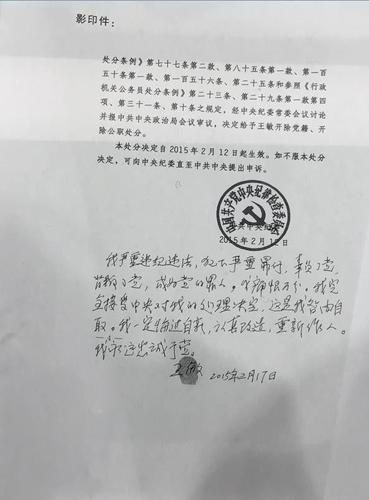 影印件：
处分条例》第七十七条第二款、第八十五条第一款、第一百
五十条第一款、第一百五十六条、第二十五条和参照《行政
机关公务员处分条例》第二十三条、第二十九条第一款第四
项、第三十一条、第十条之规定，经中央纪委常委会议讨论
并报中共中央政治局会议审议，决定给予王敏开除党籍、开
除公职处分。
本处分决定自2015年2月12日起生效。如不服本处分
决定，可向中央纪委直至中共中央提出申诉。
中国共产党中央纪律检查委员会
中共中央纪
2015年2月12日
我严重违纪违法，犯下严重罪行，辜负了党，
背叛了党，成为党的罪人。我痛恨万分。我完
全接受中央对我的处理决定，这是我咎由自
取。我一定悔过自新，认真改造，重新作人。
我永远忠诚于党。
王敏
2015年2月17日